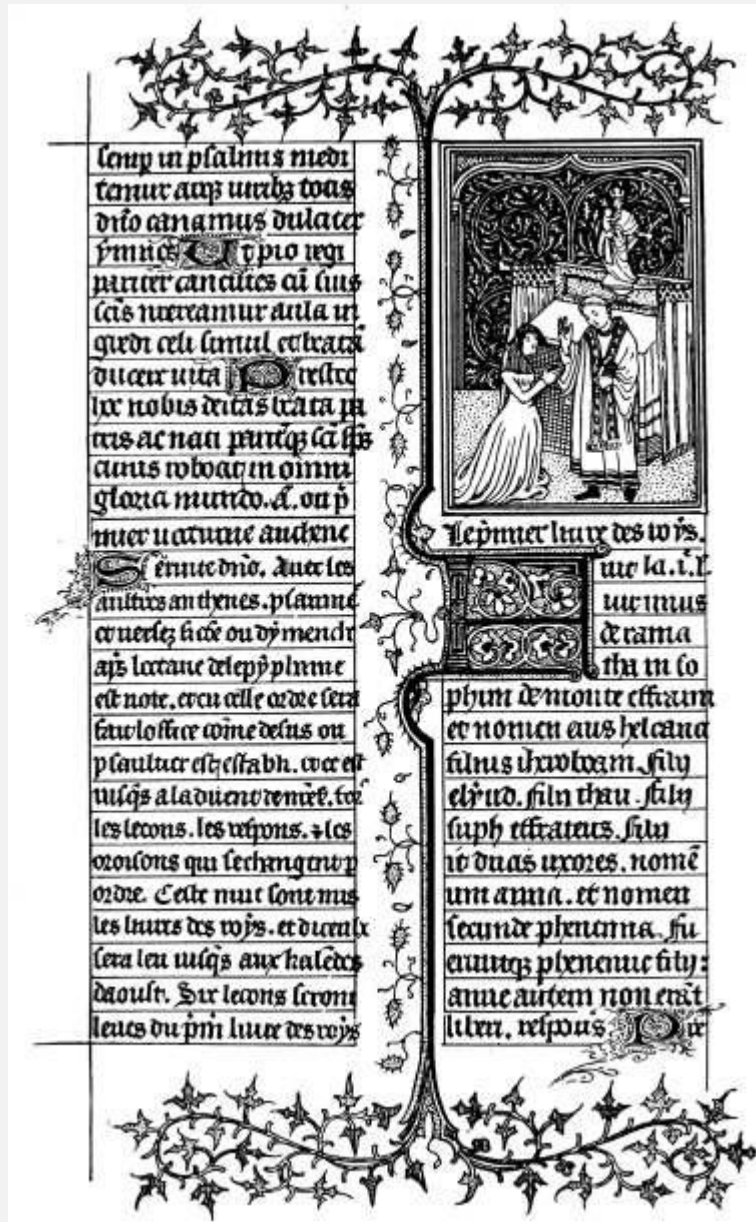 semp in psalmis medi
temur atq3 uirib3 totis
dño canamus dulciter
ymnos Ut pio regi
pariter canentes cū suis
scīs mereamur aula in
gredi celi simul et beatā
ducere uitā Preste
hoc nobis deitas beata pa
tris ac nati pariterq3 scī sp̄s
cuius reboat in omni
gloria mundo. A. ou p̄
mier nocturne anthene
Seruite dño. Auec les
aultres anthenes. psaulme
et uersez sicōe ou dymenche
ap̄s loctaue de lepyphanie
est note. et en celle ordre sera
fait loffice cōme desus ou
psaultier est establi. et ce est
iusq̄s a laduent
les lecons. les respons. les
oroisons qui se changent p
ordre. Ceste nuit sont mis
les liures des roys. et diceulx
sera leu iusq̄s aux kalēdes
daoust. Six lecons seront
leues du p̄m liure des roys
Le p̄mier liure des roys.
Fuit
uir unus
de rama
tha in so
phim de monte effraim
et nomen eius helcana
filius iheroboam. filij
elyud. filij thau. filij
suph effrateus. filij
it duas uxores. nomē
uni anna. et nomen
secunde phenenna. fu
eruntq3 phenenne filij:
anne autem non erāt
liberi. respons Pre